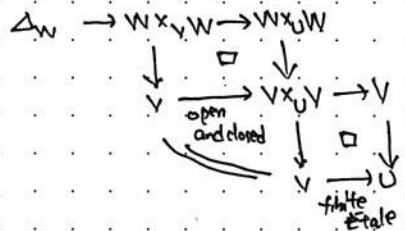 Δ_W → W×_V W → W×_U W
↓ □ ↓
V → V×_U V → V
open and closed
↓ □ ↓
V → U
finite étale